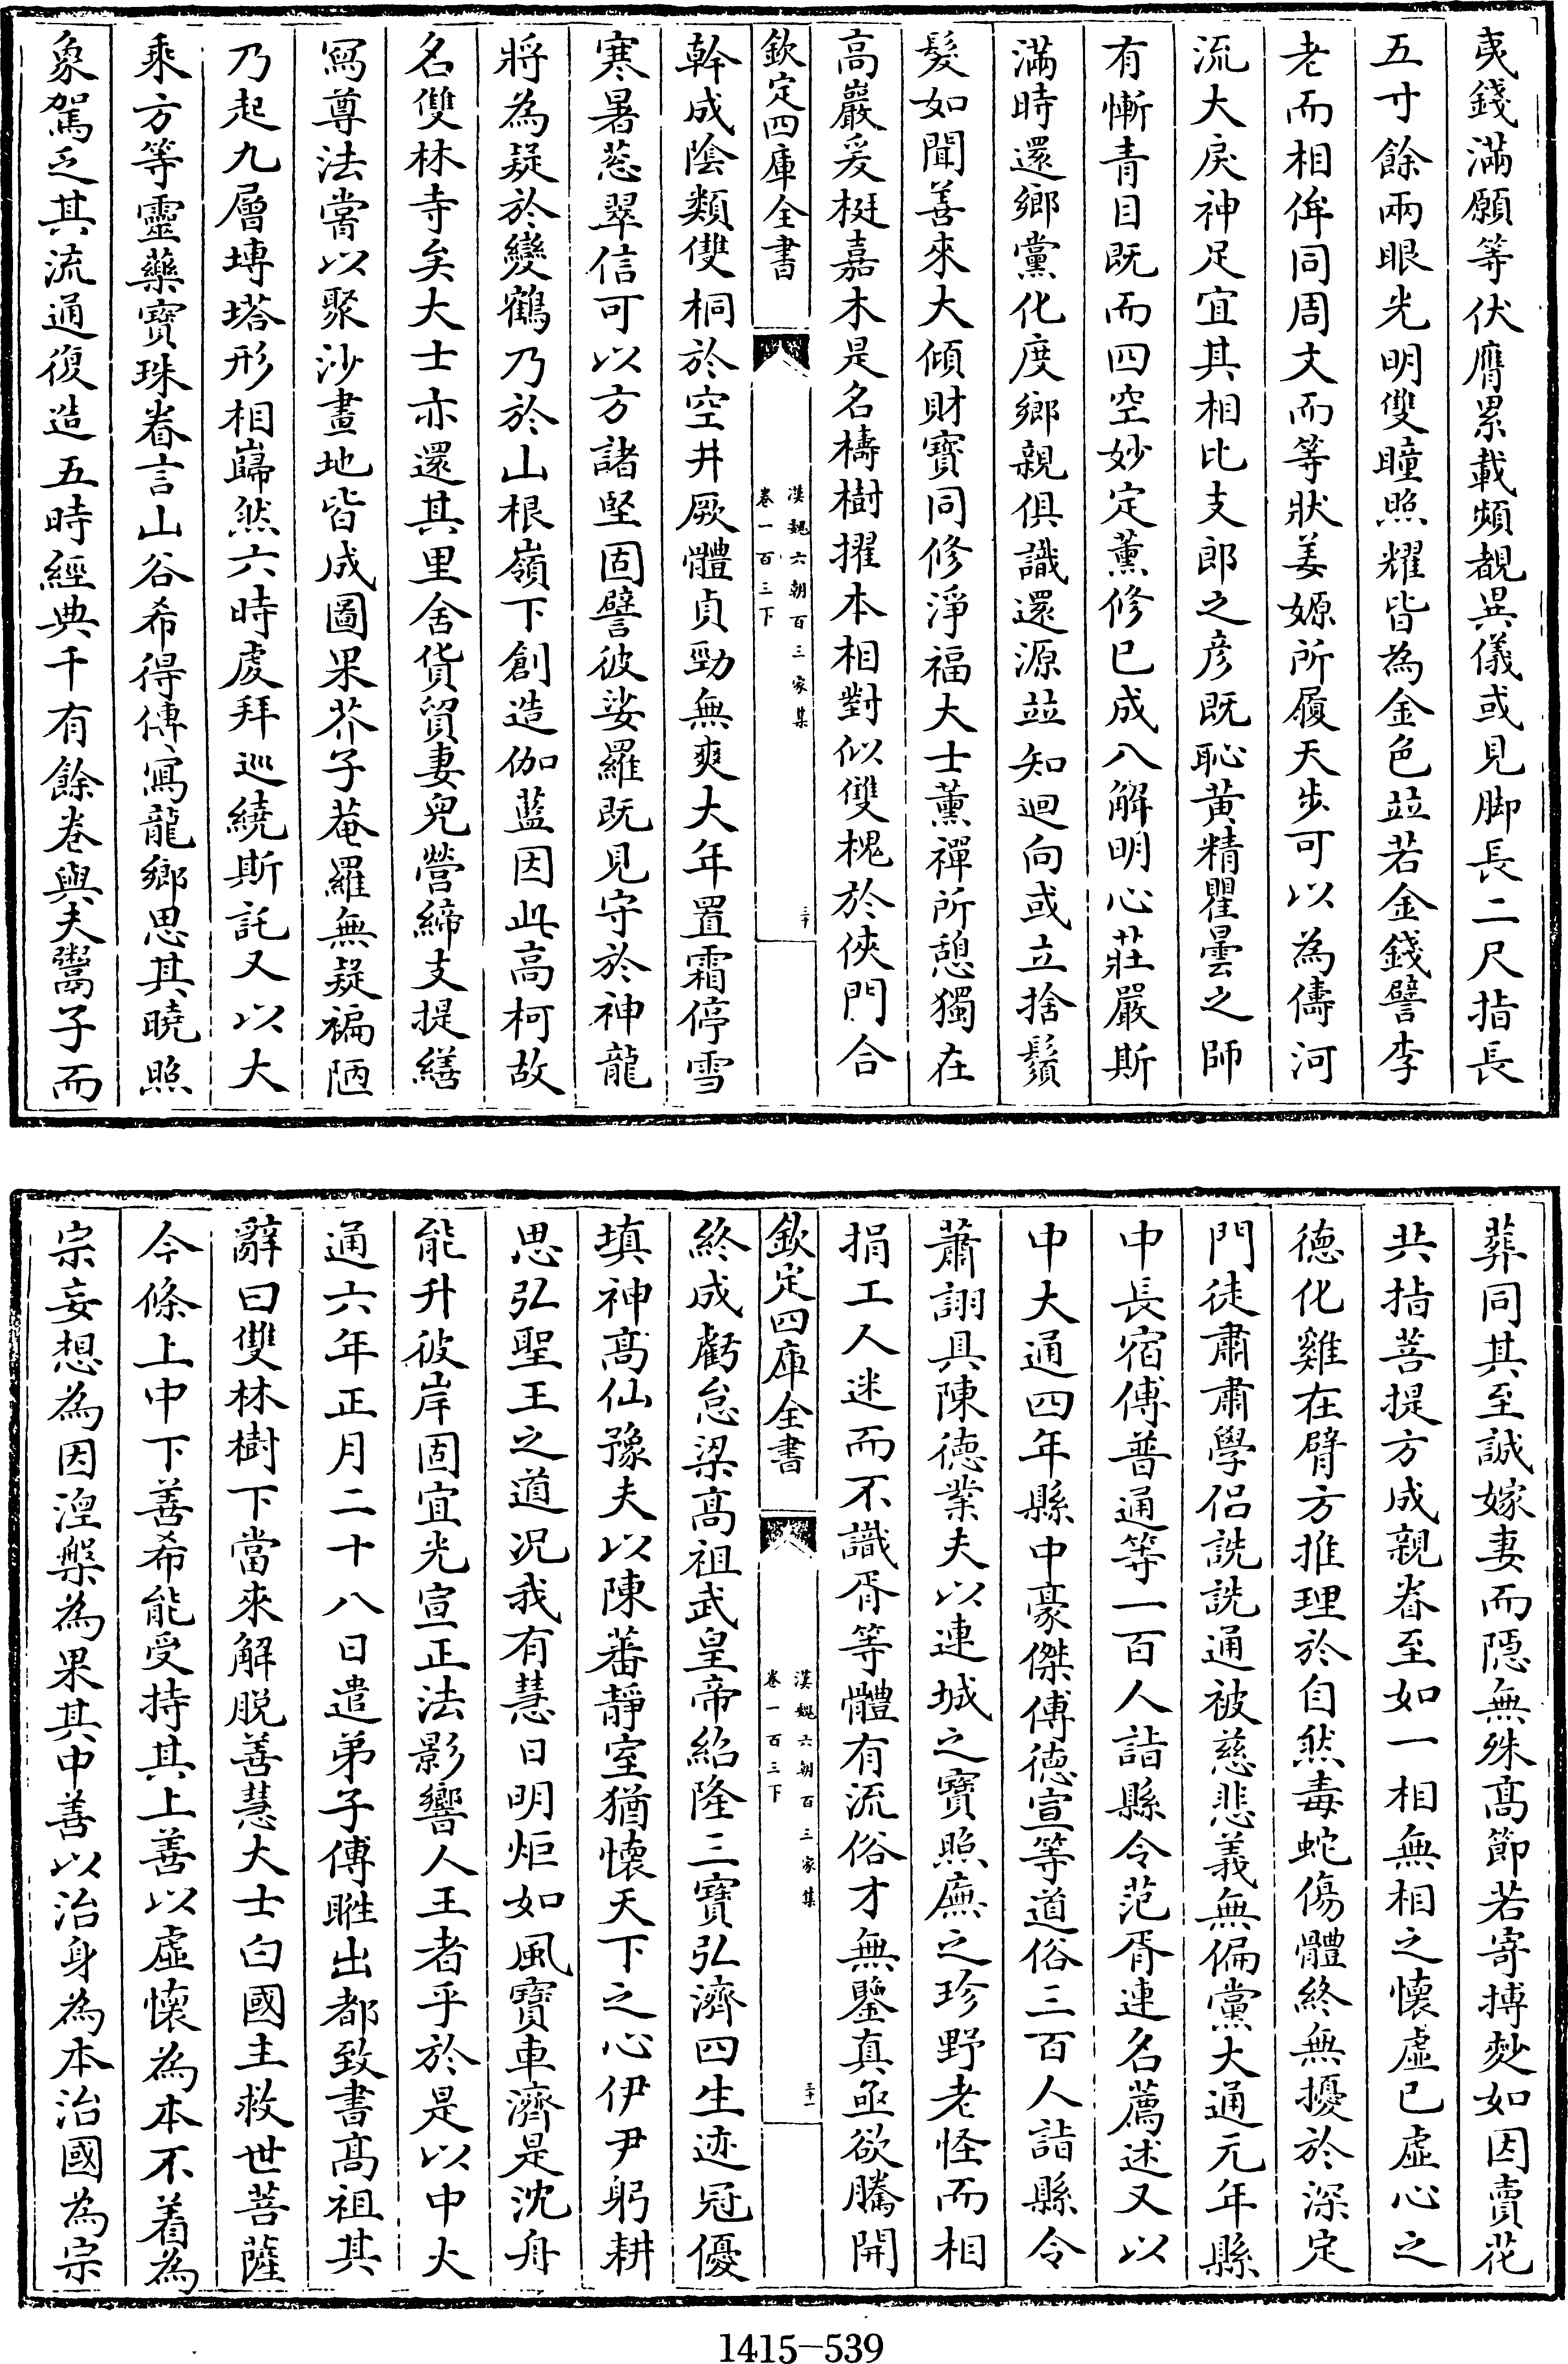 夷錢滿願等伏膺累載頻覩異儀或見脚長二尺指長
五寸餘兩眼光明雙瞳照耀皆為金色並若金錢譬李
老而相侔同周文而等狀姜嫄所履天步可以為儔河
流大戾神足宜其相比支郎之彦既恥黃精瞿曇之師
有慚青目既而四空妙定薰修已成八解明心莊嚴斯
滿時還鄉黨化度鄉親俱識還源並知迴向或立捨鬚
髮如聞善來大傾財寶同修淨福大士薰禪所憩獨在
高巖爰挺嘉木是名檮樹擢本相對似雙槐於俠門合
欽定四庫全書
漢魏六朝百三家集
卷一百三下
三十
幹成陰類雙桐於空井厥體貞勁無爽大年置霜停雪
寒暑葱翠信可以方諸堅固譬彼娑羅既見守於神龍
將為疑於變鶴乃於山根嶺下創造伽藍因此高柯故
名雙林寺矣大士亦還其里舍貨貿妻兒營締支提繕
寫尊法嘗以聚沙畫地皆成圖果芥子菴羅無疑褊陋
乃起九層塼塔形相巋然六時虔拜巡繞斯託又以大
乘方等靈藥寶珠眷言山谷希得傳寫龍鄉思其曉照
象駕乏其流通復造五時經典千有餘卷與夫鬻子而
葬同其至誠嫁妻而隱無殊髙節若寄搏㛮如因賣花
共指菩提方成親眷至如一相無相之懐虛已虛心之
徳化雞在臂方推理於自然毒蛇傷體終無擾於深定
門徒肅肅學侣詵詵通被慈悲義無偏黨大通元年縣
中長宿傅普通等一百人詣縣令范胥連名薦述又以
中大通四年縣中豪傑傅徳宣等道俗三百人詣縣令
蕭詡具陳徳業夫以連城之寶照廡之珍野老怪而相
捐工人迷而不識胥等體有流俗才無鑒真亟欲騰開
欽定四庫全書
漢魏六朝百三家集
卷一百三下
三十一
終成虧怠梁髙祖武皇帝紹隆三寶弘濟四生迹冠優
填神髙仙豫夫以陳蕃靜室猶懐天下之心伊尹躬耕
思弘聖王之道况我有慧日明炬如風寶車濟是沈舟
能升彼岸固宜光宣正法影響人王者乎於是以中大
通六年正月二十八日遣弟子傅暀出都致書髙祖其
辭曰雙林樹下當來解脱善慧大士白國主救世菩薩
今條上中下善希能受持其上善以虛懐為本不着為
宗妄想為因湼槃為果其中善以治身為本治國為宗
1415-539